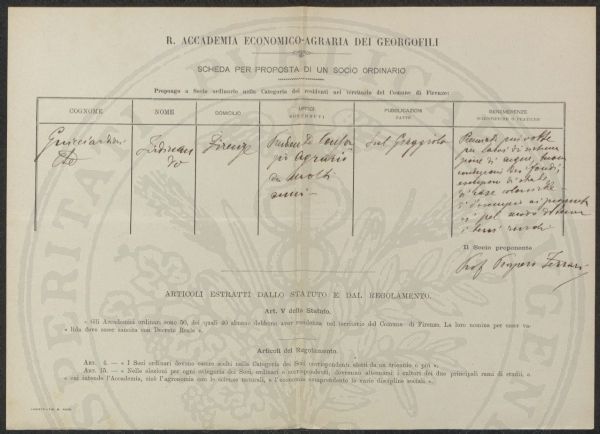 R. ACCADEMIA ECONOMICO-AGRARIA DEI GEORGOFILI
SCHEDA PER PROPOSTA DI UN SOCIO ORDINARIO
Propongo a Socio ordinario nella Categoria dei residenti nel territorio del Comune di Firenze:
COGNOME
NOME
DOMICILIO
UFFICI
SOSTENUTI
PUBBLICAZIONI
FATTE
BENEMERENZE
SCIENTIFICHE O PRATICHE
Guicciardini
Ferdinan
do
Firenze
Agrario
da molti
anni
Premiato più volte
per lavori di
di acque,
di case coloniche
Il Socio proponente
Prof Prospero Ferrari
ARTICOLI ESTRATTI DALLO STATUTO E DAL REGOLAMENTO.
Art. V dello Statuto.
« Gli Accademici ordinari sono 50, dei quali 40 almeno debbono aver residenza nel territorio del Comune di Firenze. La loro nomina per esser va-
« lida deve esser sancita con Decreto Reale ».
Articoli del Regolamento.
ART. 4. — « I Soci ordinari devono essere scelti nella Categoria dei Soci corrispondenti eletti da un triennio, o più ».
ART. 15. — « Nelle elezioni per ogni categoria dei Soci, ordinari e corrispondenti, dovranno alternarsi i cultori dei due principali rami di studii, a
« cui intende l'Accademia, cioè l'agronomia con le scienze naturali, e l'economia comprendente le varie discipline sociali ».